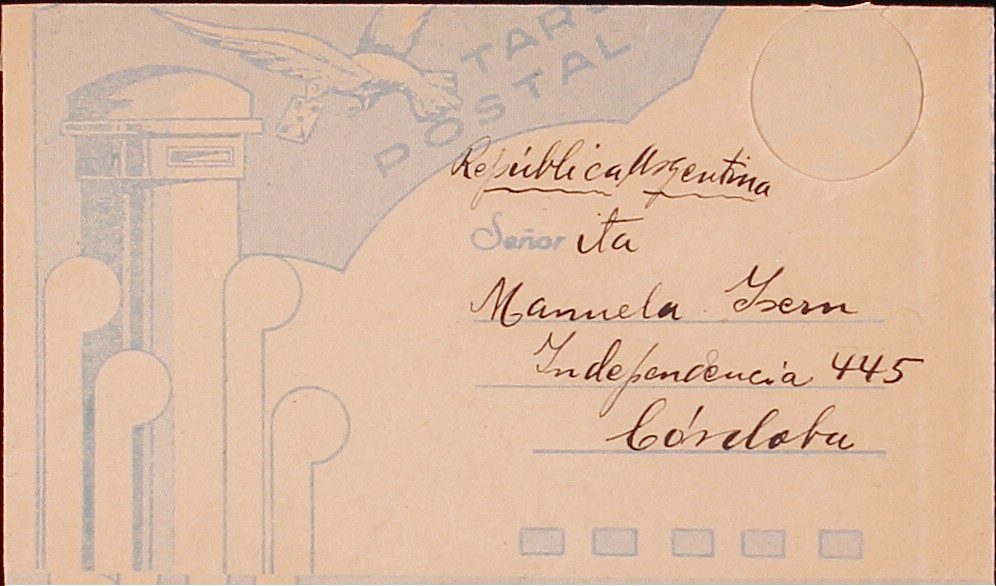 TARJ
POSTAL
República Argentina
Señor ita
Manuela Isern
Independencia 445
Córdoba